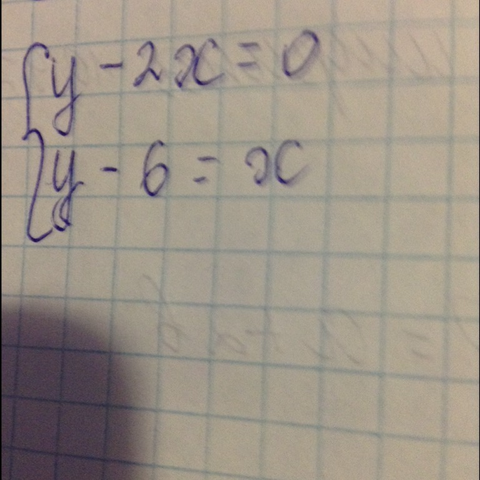 y - 2x = 0
y - 6 = x